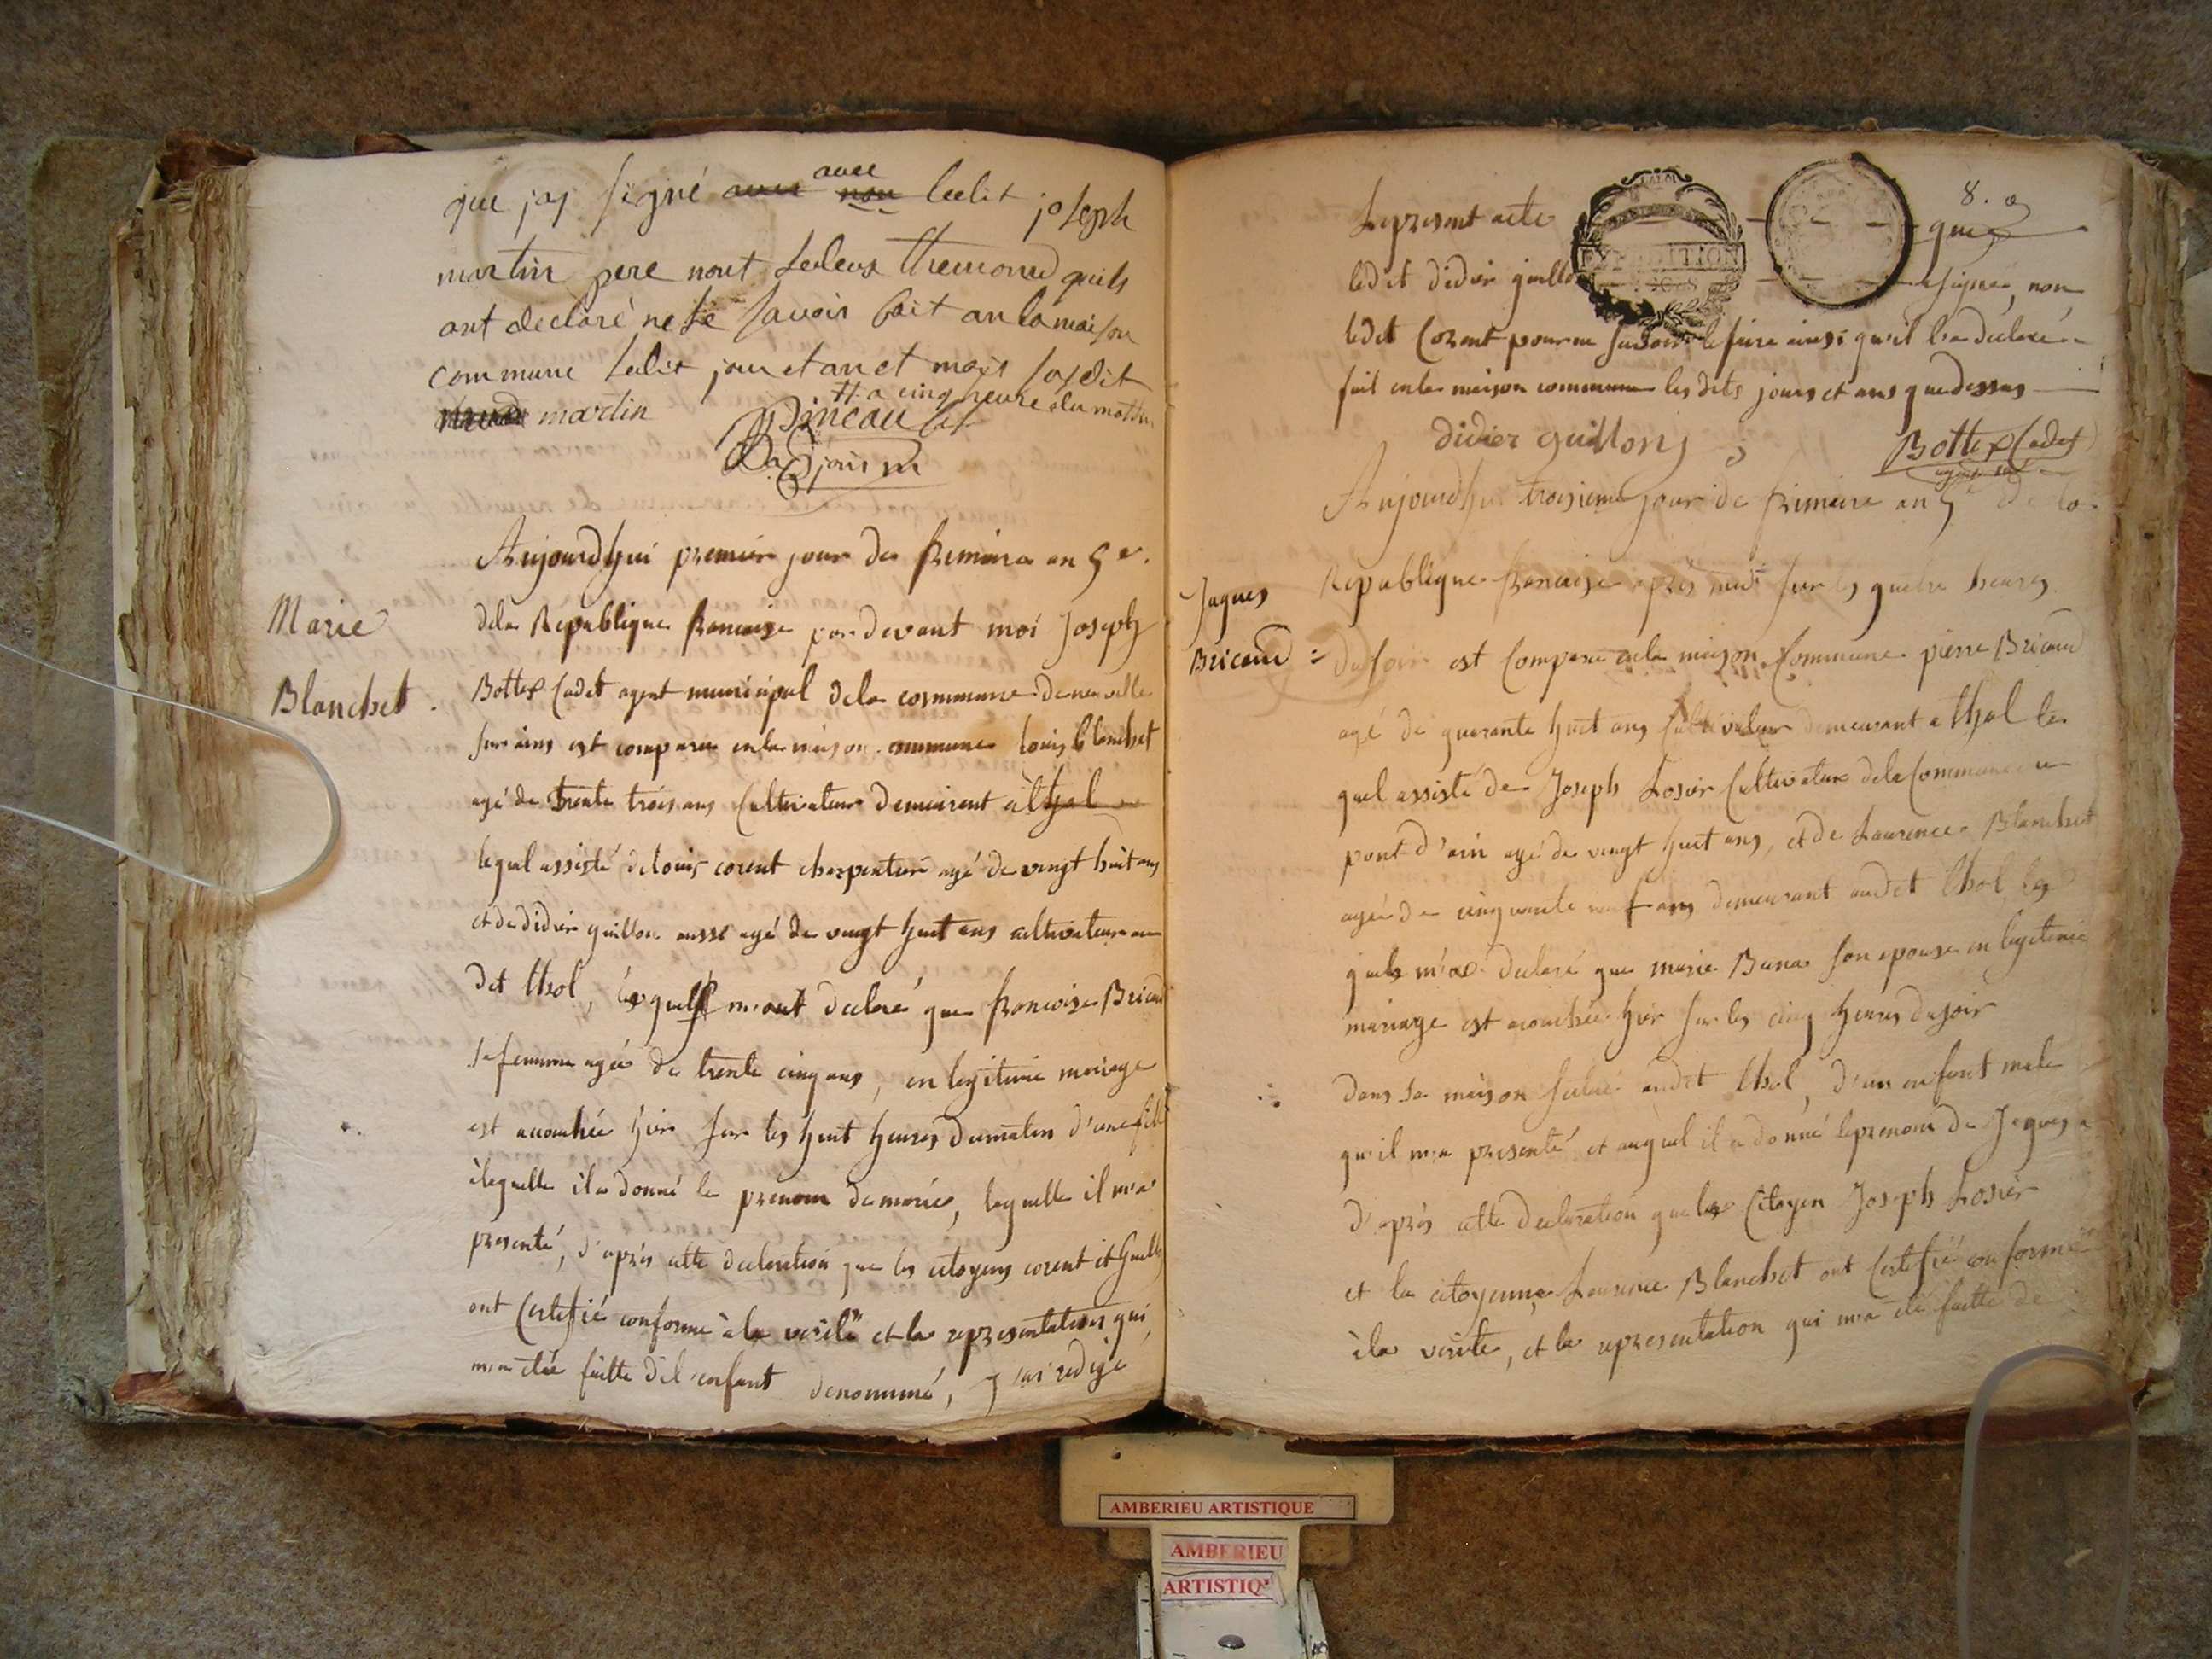 que jay signé avec ledit joseph
martin pere nont les deux themoned quils
ont declaré ne le savoir fait an la maison
commune ledit jour et an et mois susdit
tt a cinq heure du mattin
martin Pineau
Aujourdhui premier jour de frimaire an 5e.
Marie
Blanchet
dela Republique francaise par devant moi Joseph
Bottex Cadet agent municipal dela commune de neuville
sur ains est comparu enla maison commune louis blanchet
agé de trente trois ans Cultivateur demeurant à thol
lequel assisté de louis corent charpentier agé de vingt huit ans
et de didier guillon aussi agé de vingt huit ans cultivateur au
dit thol, lesquels m'ont declaré que francoise Bricaud
sa femme agée de trente cinq ans, en legitime mariage
est acouchée hier sur les huit heures dumatin d'une fille
àlaquelle il a donné le prenom de marie, laquelle il m'a
presenté, d'après cette declaration que les citoyens corent et Guillon
ont Certifié conforme à la verité et la representation qui
m'a etée faitte de l'enfant denommé, j'ai redigé
8.
Lepresent acte que
ledit didier guillon signer, non
ledit Corent pour ne savoir le faire ainsi qu'il l'a déclaré
fait enla maison commune les dits jours et ans que dessus
didier guillon Bottex Cadet
Aujourdhui troisieme jour de frimaire an 5e de la
Republique francaise après midi sur les quatre heures
Jaques
Bricaud =
Du soir est Comparu enla maison Commune pierre Bricaud
agé de quarante huit ans Cultivateur demeurant a thol le
quel assisté de Joseph Losier Cultivateur dela Commune
pont d'ain agé de vingt huit ans, et de Laurence Blanchet
agée de cinquante neuf ans demeurant audit thol, les
quels m'a declaré que marie Buna son epouse en legitime
mariage est acouchée hier sur les cinq heures dusoir
dans sa maison audit thol, d'un enfant male
qu'il m'a presenté et auquel il a donné leprenom de Jaques
d'après cette declaration que le Citoyen Joseph Losier
et la citoyenne Laurence Blanchet ont Certifié conforme
àla verité, et la representation qui m'a été faitte de
AMBERIEU ARTISTIQUE
AMBERIEU
ARTISTIQ